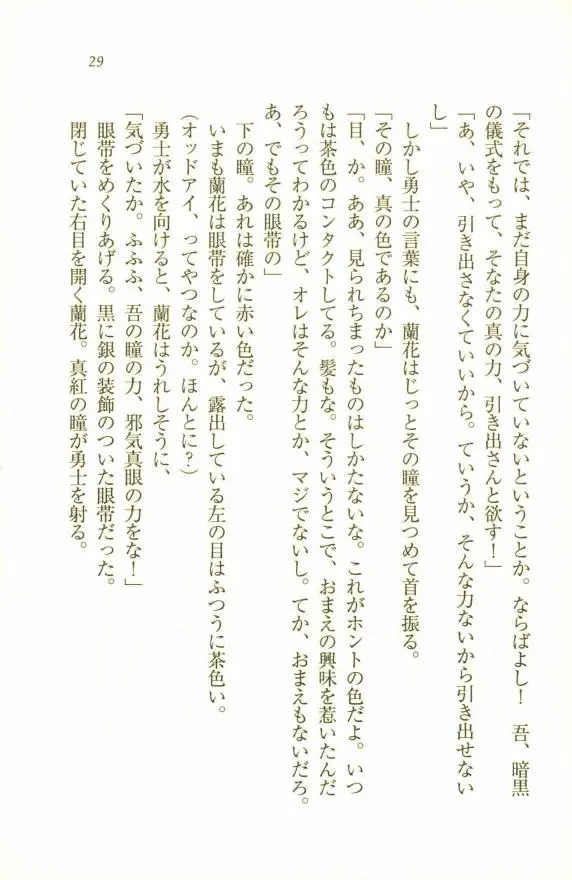 29
「それでは、まだ自身の力に気づいていないということか。ならばよし！　吾、暗黒
の儀式をもって、そなたの真の力、引き出さんと欲す！」
「あ、いや、引き出さなくていいから。ていうか、そんな力ないから引き出せない
し」
しかし勇士の言葉にも、蘭花はじっとその瞳を見つめて首を振る。
「その瞳、真の色であるのか」
「目、か。ああ、見られちまったものはしかたないな。これがホントの色だよ。いつ
もは茶色のコンタクトしてる。髪もな。そういうとこで、おまえの興味を惹いたんだ
ろうってわかるけど、オレはそんな力とか、マジでないし。てか、おまえもないだろ。
あ、でもその眼帯の」
下の瞳。あれは確かに赤い色だった。
いまも蘭花は眼帯をしているが、露出している左の目はふつうに茶色い。
（オッドアイ、ってやつなのか。ほんとに？）
勇士が水を向けると、蘭花はうれしそうに、
「気づいたか。ふふふ、吾の瞳の力、邪気真眼の力をな！」
眼帯をめくりあげる。黒に銀の装飾のついた眼帯だった。
閉じていた右目を開く蘭花。真紅の瞳が勇士を射る。